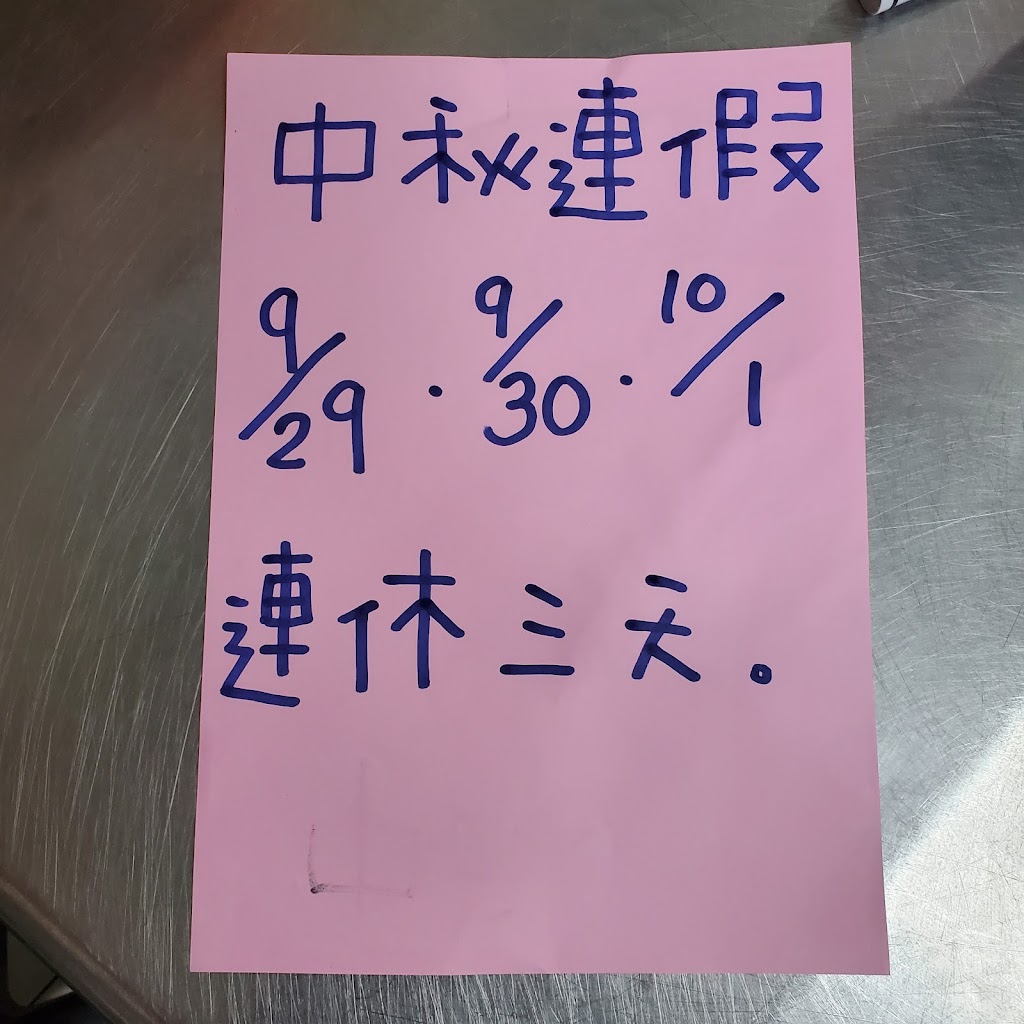 中秋連假
9/29·9/30·10/1
連休三天。